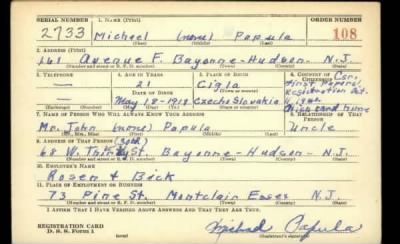 SERIAL NUMBER 1. NAME (Print) ORDER NUMBER
2733 Michael (none) Papula 108
(First) (Middle) (Last)
2. ADDRESS (Print)
161 Avenue F. Bayonne-Hudson- N.J.
(Number and street or R. F. D. number) (Town) (County) (State)
3. TELEPHONE 4. AGE IN YEARS 5. PLACE OF BIRTH 6. COUNTRY OF CITIZENSHIP
21 Cigla
DATE OF BIRTH
May 18-1919 Czechoslovakia
(Exchange) (Number) (Mo.) (Day) (Yr.) (State or country)
First Papers
Registration
7. NAME OF PERSON WHO WILL ALWAYS KNOW YOUR ADDRESS 8. RELATIONSHIP OF THAT PERSON
Mr. John (none) Papula Uncle
(Mr., Mrs., Miss) (First) (Middle) (Last)
9. ADDRESS OF THAT PERSON
68 W. St. Bayonne-Hudson- N.J.
(Number and street or R. F. D. number) (Town) (County) (State)
10. EMPLOYER'S NAME
Rosen & Bick
11. PLACE OF EMPLOYMENT OR BUSINESS
73 Pine St. Montclair Essex N.J.
(Number and street or R. F. D. number) (Town) (County) (State)
I AFFIRM THAT I HAVE VERIFIED ABOVE ANSWERS AND THAT THEY ARE TRUE.
REGISTRATION CARD
D. S. S. Form 1 Michael Papula
(Registrant's signature)